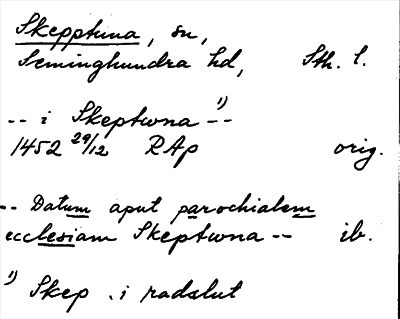 Skepptuna, sn,
Seminghundra hd, Sth. l.
-- i Skeptwna ¹⁾ --
1452 29/12 RAp orig.
-- Datum aput parochialem
ecclesiam Skeptwna -- ib.
¹⁾ Skep . i radslut